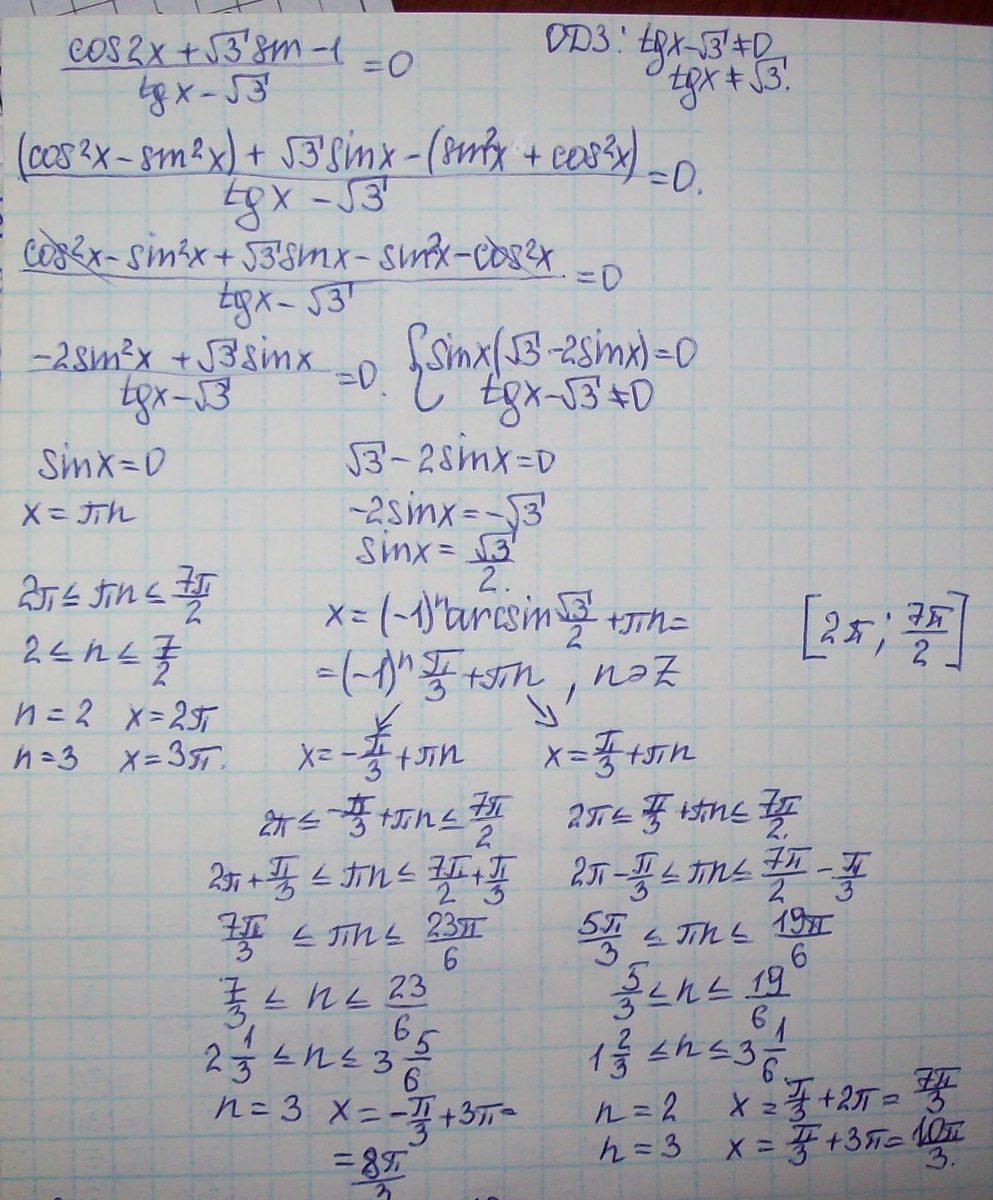 (cos2x + √3 sin - 1)/(tgx - √3) = 0
ОДЗ: tgx - √3 ≠ 0
tgx ≠ √3.
((cos²x - sin²x) + √3 sinx - (sin²x + cos²x))/(tgx - √3) = 0.
(cos²x - sin²x + √3 sinx - sin²x - cos²x)/(tgx - √3) = 0
(-2sin²x + √3 sinx)/(tgx - √3) = 0.
{ sinx(√3 - 2sinx) = 0
tgx - √3 ≠ 0
sinx = 0
x = πn
2π ≤ πn ≤ 7π/2
2 ≤ n ≤ 7/2
n = 2 x = 2π
n = 3 x = 3π.
√3 - 2sinx = 0
-2sinx = -√3
sinx = √3/2.
x = (-1)ⁿ arcsin √3/2 + πn =
= (-1)ⁿ π/3 + πn , n∍Z
[2π; 7π/2]
↙ ↘
x = -π/3 + πn
2π ≤ -π/3 + πn ≤ 7π/2
2π + π/3 ≤ πn ≤ 7π/2 + π/3
7π/3 ≤ πn ≤ 23π/6
7/3 ≤ n ≤ 23/6
2 1/3 ≤ n ≤ 3 5/6
n = 3 x = -π/3 + 3π =
= 8π/3
x = π/3 + πn
2π ≤ π/3 + πn ≤ 7π/2.
2π - π/3 ≤ πn ≤ 7π/2 - π/3
5π/3 ≤ πn ≤ 19π/6
5/3 ≤ n ≤ 19/6
1 2/3 ≤ n ≤ 3 1/6.
n = 2 x = π/3 + 2π = 7π/3
n = 3 x = π/3 + 3π = 10π/3.